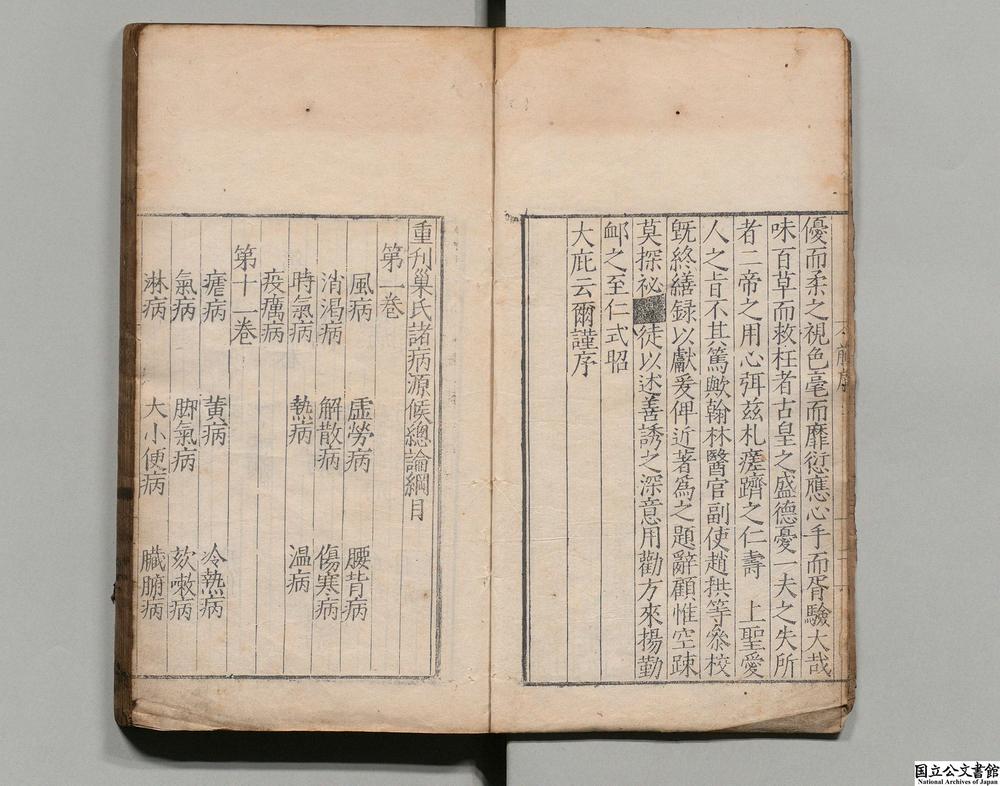 優而柔之視色毫而靡愆應心手而胥驗大哉
味百草而救枉者古皇之盛德憂一夫之失所
者二帝之用心弭兹札瘥躋之仁壽　上聖愛
人之旨不其篤歟翰林醫官副使趙拱等叅校
旣終繕録以獻爰俾近著爲之題辭顧惟空踈
莫探祕徒以述善誘之深意用勸方來揚勤
卹之至仁式昭
大庇云爾謹序
重刋巢氏諸病源候總論綱目
第一卷
風病　虛勞病　腰背病
消渴病　解散病　傷寒病
時氣病　熱病　温病
疫癘病
第十一卷
瘧病　黄病　冷熱病
氣病　脚氣病　欬嗽病
淋病　大小便病　臟腑病
国立公文書館
National Archives of Japan